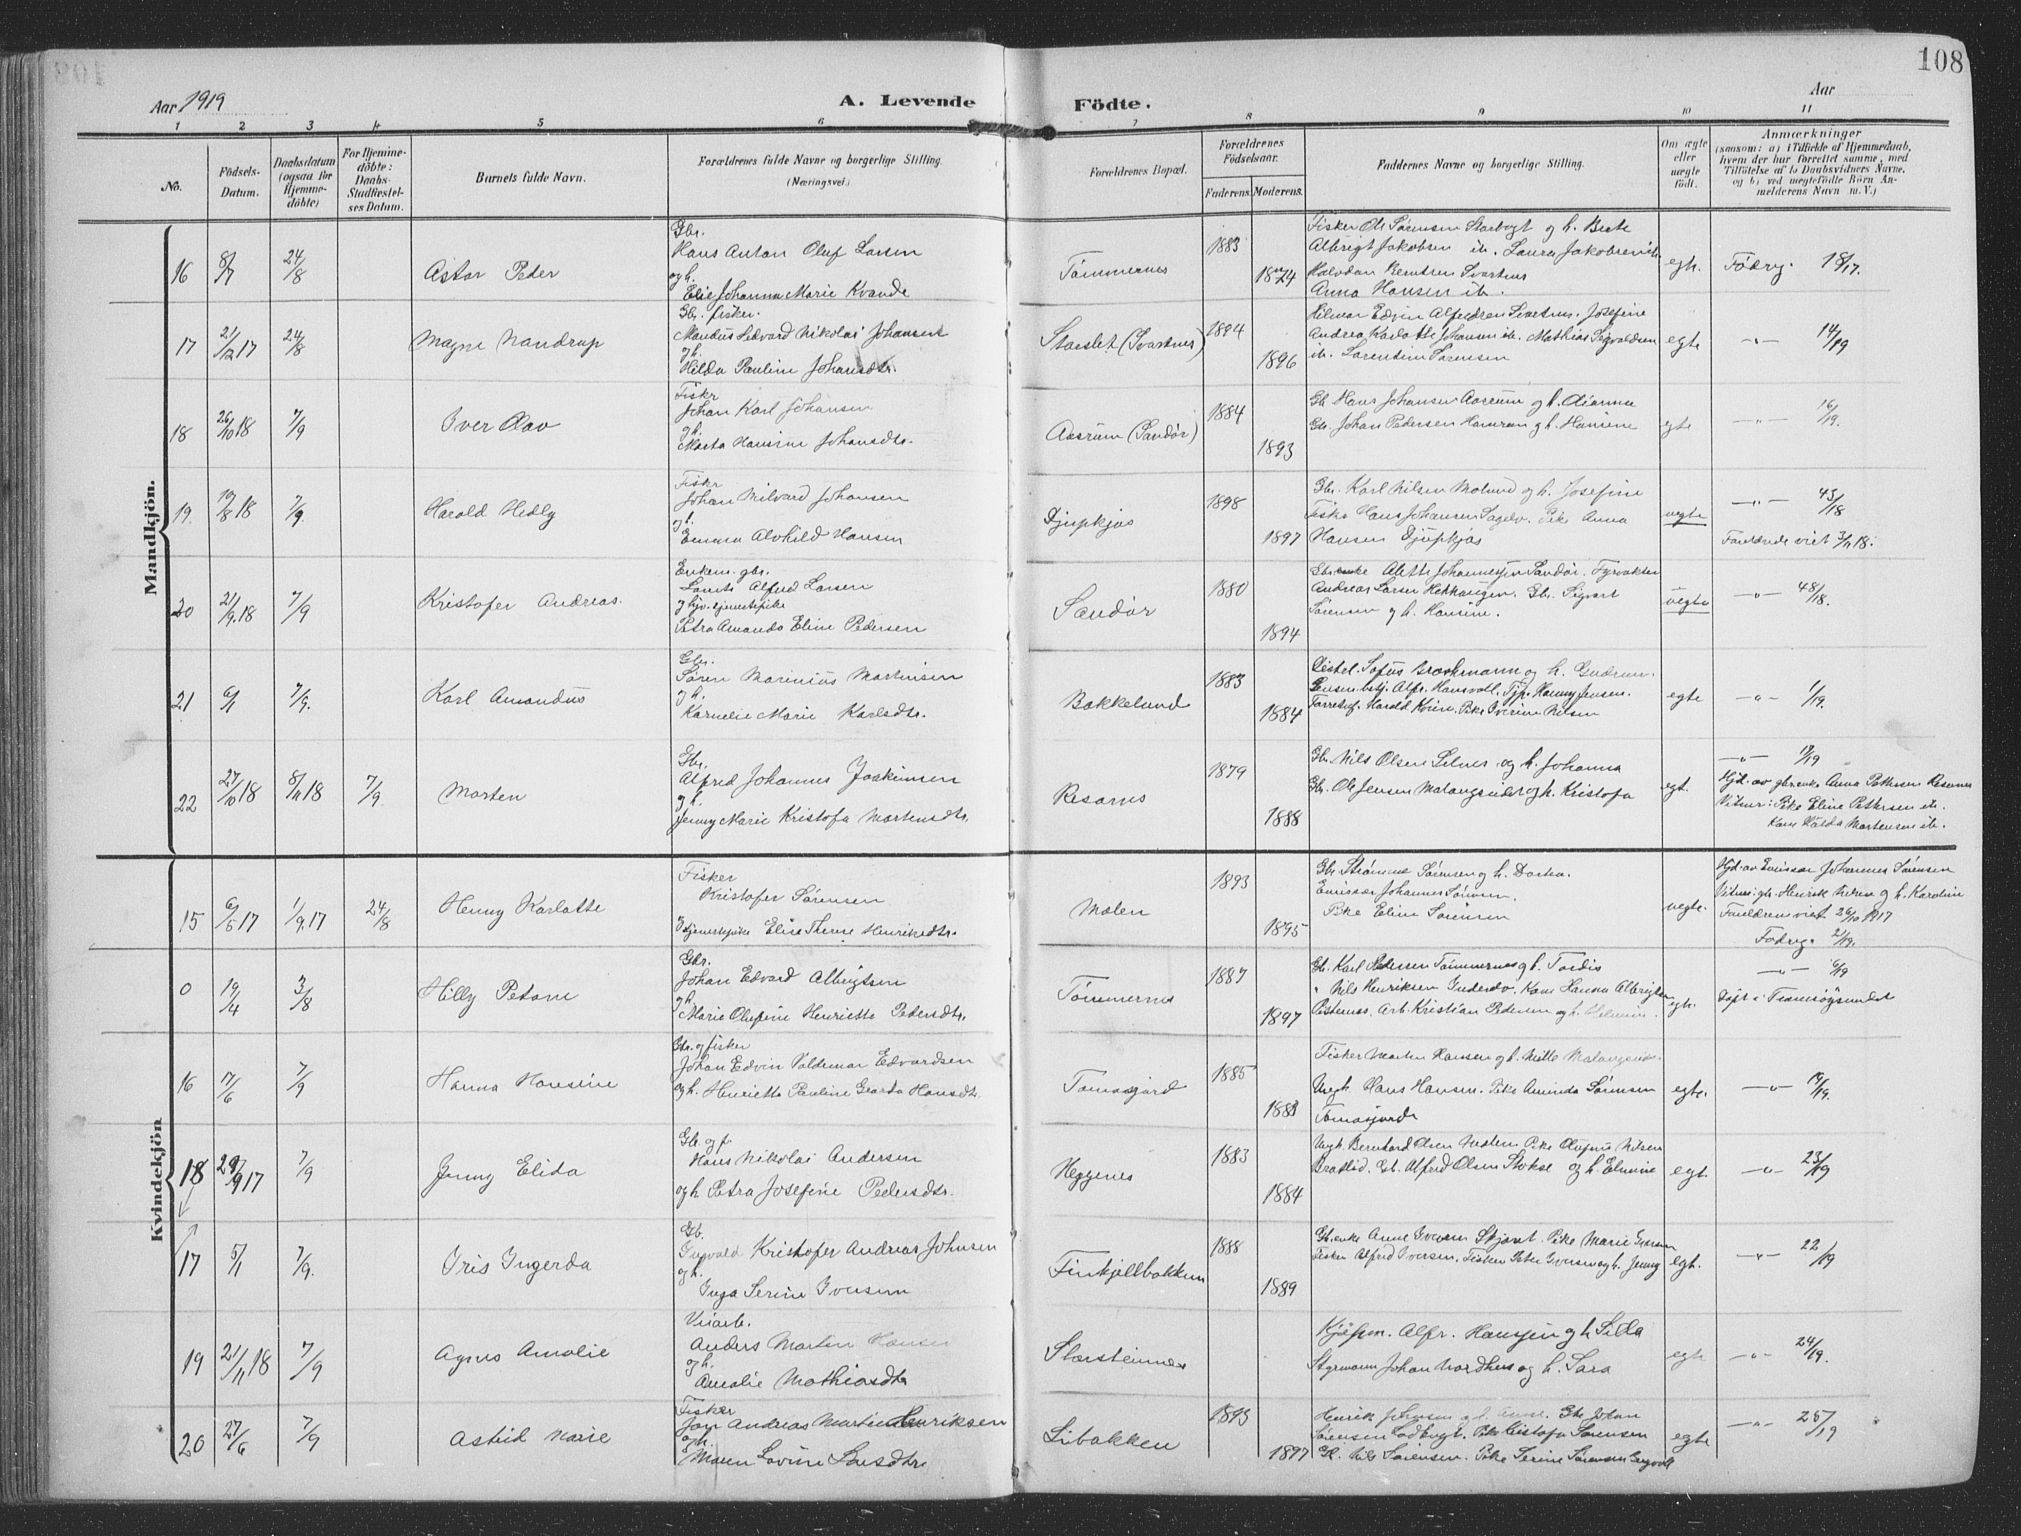 108
Aar 1919
A. Levende Födte.
Aar
1 2 3 4 5 6 7 8 9 10 11
No.
Födsels-Datum.
Daabsdatum (ogsaa for Hjemmedöbte)
For Hjemmedöbte: Daabs-Stadfæstelses Datum.
Barnets fulde Navn.
Forældrenes fulde Navne og borgerlige Stilling.
(Næringsvei.)
Forældrenes Bopæl.
Forældrenes Födselsaar.
Faderens. Moderens.
Faddernes Navne og borgerlige Stilling.
Om ægte eller uægte födt.
Anmærkninger
(saasom: a) i Tilfælde af Hjemmedaab, hvem der har forrettet samme, med Tilföielse af to Daabsvidners Navne, og b) ved uægtefödte Börn Anmelderens Navn m. V.)
Mandkjön.
16 8/7 24/8 Astor Peder
Gbr.
Hans Anton Oluf Larsen
og h.
Elie Johanna Marie Kvande
Tømmernes 1883 1874
Fisker Ole Sørensen og h. Berte
Albrigt Jakobsen ib. Laura Jakobsen ib.
Halvdan Berntsen Svartnes
Anna Hansen ib.
egt. Fødrg. 18/17.
17 21/12 17 24/8 Magne Nandrup
Gbr. fisker.
Mandus Edvard Nikolai Johansen
og h.
Hilda Pauline Johansdtr.
Storslet (Svartnes) 1894 1896
Hilmar Edvin Alfredsen Svartnes. Josefine
Andrea Karlotte Johansen ib. Mathias Sigvaldsen
ib. Lorentine Sørensen
egte -"- 14/19
18 26/10 18 7/9 Iver Olav
Fisker
Johan Karl Johansen
og h.
Marta Hansine Johansdtr.
Aasrum (Sandør) 1884 1893
Gb. Hans Johansen Aasrum og h.
Gbr. Johan Pedersen og h. Hansine
egte -"- 16/19.
19. 19/8 18 7/9. Harold Hedly
Fiskr
Johan Milvard Johansen
og h.
Emma Alvhild Hansen
Djupkjos 1898 1897
Gbr. Karl Nilsen Molund og h. Josefine
Fisker Hans Johansen Pike Anna
Hansen Djupkjos
uegte -"- 43/18
Forældrene viet 3/11 18.
20 21/9.18 7/9 Kristofer Andreas.
Enkem. gbr.
Lorents Alfred Larsen
og tjenestepike
Petra Amanda Eline Pedersen
Sandør 1880 1894
Gbr.enke Alette Johannessen Sandør. Fyrvokter
Andreas Larsen Hekkingen. Gbr. Sigvart
Sørensen og h. Hansine.
uegte -"- 48/18.
21 6/1 7/9. Karl Amandus
Gbr.
Søren Marinius Martinsen
og h.
Karnelie Marie Karlsdtr.
Bakkelund 1883 1884
Sofus Brochmann og h. Gudrun.
Alfr. Hansvoll. Tjp. Hanny Jensen.
Harold Pike Iverine Nilsen
egte -"- 1/19.
22 27/10 18 8/11 18 7/9. Morten
Gbr.
Alfred Johannes Joakimsen
og h.
Jenny Marie Kristofa Mortensdtr.
Resarnes 1879 1888
Gbr. Nils Olsen Selnes og h. Johanna
Gbr. Ole Jensen og h. Kristofa
egt. -"- 19/19
Hjd. av gbr.enke Anna Pettersen Resarnes
Vitner: Pike Eline Pettersen ib.
Kone Halda Mortensen ib.
Kvindekjön
15 6/5 17 1/9.17 24/8 Henny Karlotte
Fisker
Kristofer Sørensen
Tjenestepike Elise Therese Henriksdtr.
Molen 1893 1895
Gbr. Strømme Sørensen og h. Dortea.
Emissær Johannes Sørensen.
Pike Eline Sørensen
uegte.
Hjd. av Emissær Johannes Sørensen
Vitner: gbr. Henrik Nilsen og h. Karoline
Forældrene viet 26/10 1917
Fødrg. 2/19.
0 19/4 3/8 Hilly Petone
Gbr.
Johan Edvard Albrigtsen
og h.
Marie Olufine Henriette Pedersdtr.
Tømmernes 1887 1897
Gb. Karl Pedersen Tømmernes og h. Tordis
" Nils Henriksen Kone Hanna Albrigtsen
Arb. Kristian Pedersen og h.
egt. -"- 6/19
Døpt i Tromsøysundet
16 17/6 7/9 Hanna Hansine
Gbr. og fisker
Johan Edvin Valdemar Edvardsen
og h. Henriette Pauline Gearda Hansdtr.
Tomasjord 1885 1883
Fisker Morten Hansen og h. Mille
Ungk. Hans Hansen. Pike Aminda Sørensen
Tomasjord
egte. -"- 19/19.
18 29/9 17 7/9 Jenny Elida
Gb. og f.
Hans Nikolai Andersen
og h. Petra Josefine Pedersdtr.
Heggenes 1883 1884
Ungk. Bernhard Olsen Pike Olufine Nilsen
Alfred Olsen og h.
egt. -"- 23/19
17 5/1 7/9. Iris Ingerda
Gb.
Ingvald Kristofer Andreas Johnsen
og h.
Inga Serine Iversen
Finkjellbakken 1888 1889
Gb.enke Anne Iversen Pike Marie Iversen
Fisker Alfred Iversen. Fisker Peter Iversen og h. Jenny
egt. -"- 22/19
19 21/11 18 7/9 Agnes Amalie
Veiarb.
Anders Morten Hansen
og h.
Amalie Mathiasdtr
Storsteinnes
Kjøpm. Alfr. Hansjen og h. Silla
Styrmann Johan Nordhus og h. Sara
egte -"- 24/19.
20 27/6 7/9 Astrid Marie
Fisker
Jon Andreas Martin Henriksen
og h.
Maren Lovine Larsdtr
Libakken 1893 1897
Henrik Johansen og h. Anne. Gbr. Johan
Sørensen Pike Kristofa Sørensen
Gb. Nils Sørensen. Pike Serine Sørensen
egte -"- 25/19